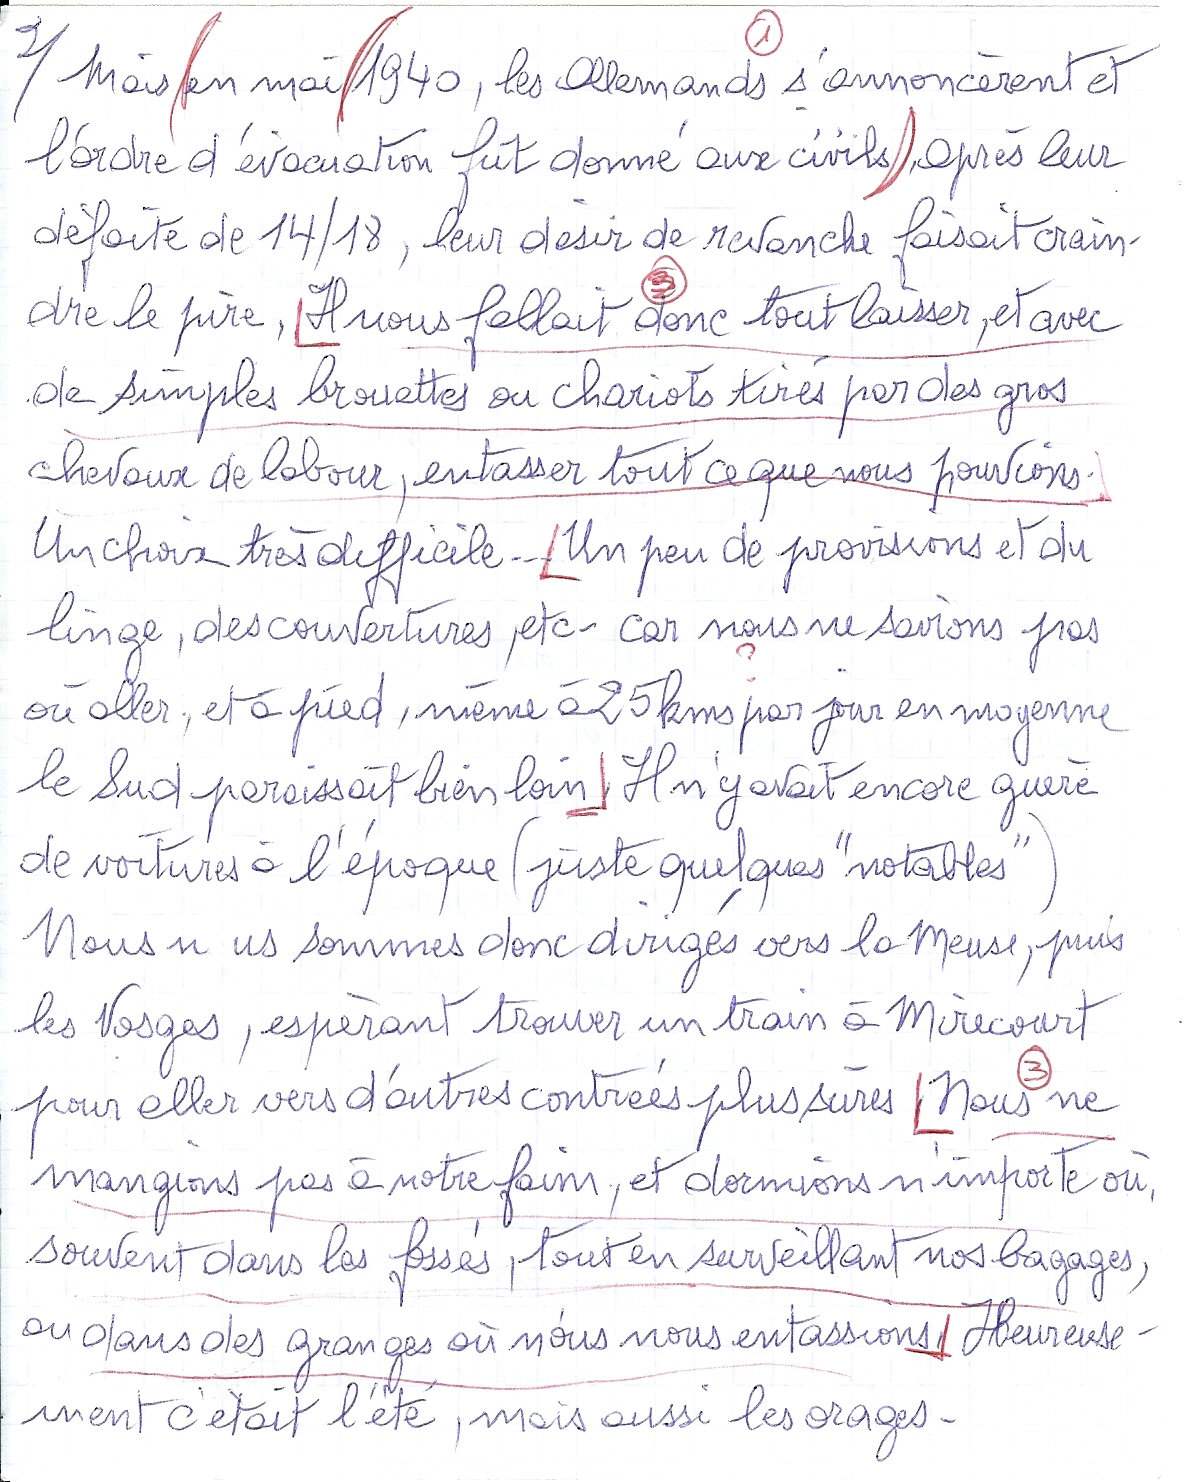 2/ Mais en mai 1940, les Allemands s'annoncèrent et
l'ordre d'évacuation fut donné aux civils, après leur
défaite de 14/18, leur désir de revanche faisait crain-
dre le pire, Il nous fallait donc tout laisser, et avec
de simples brouettes ou chariots tirés par des gros
chevaux de labour, entasser tout ce que nous pouvions.
Un choix très difficile... Un peu de provisions et du
linge, des couvertures, etc- car nous ne savions pas
où aller, et à pied, même à 25 kms par jour en moyenne
le Sud paraissait bien loin, Il n'y avait encore guère
de voitures à l'époque (juste quelques "notables")
Nous n us sommes donc dirigés vers la Meuse, puis
les Vosges, espérant trouver un train à Mirecourt
pour aller vers d'autres contrées plus sûres Nous ne
mangions pas à notre faim, et dormions n'importe où,
souvent dans les fossés, tout en surveillant nos bagages,
ou dans des granges où nous nous entassions, Heureuse-
ment c'était l'été, mais aussi les orages-